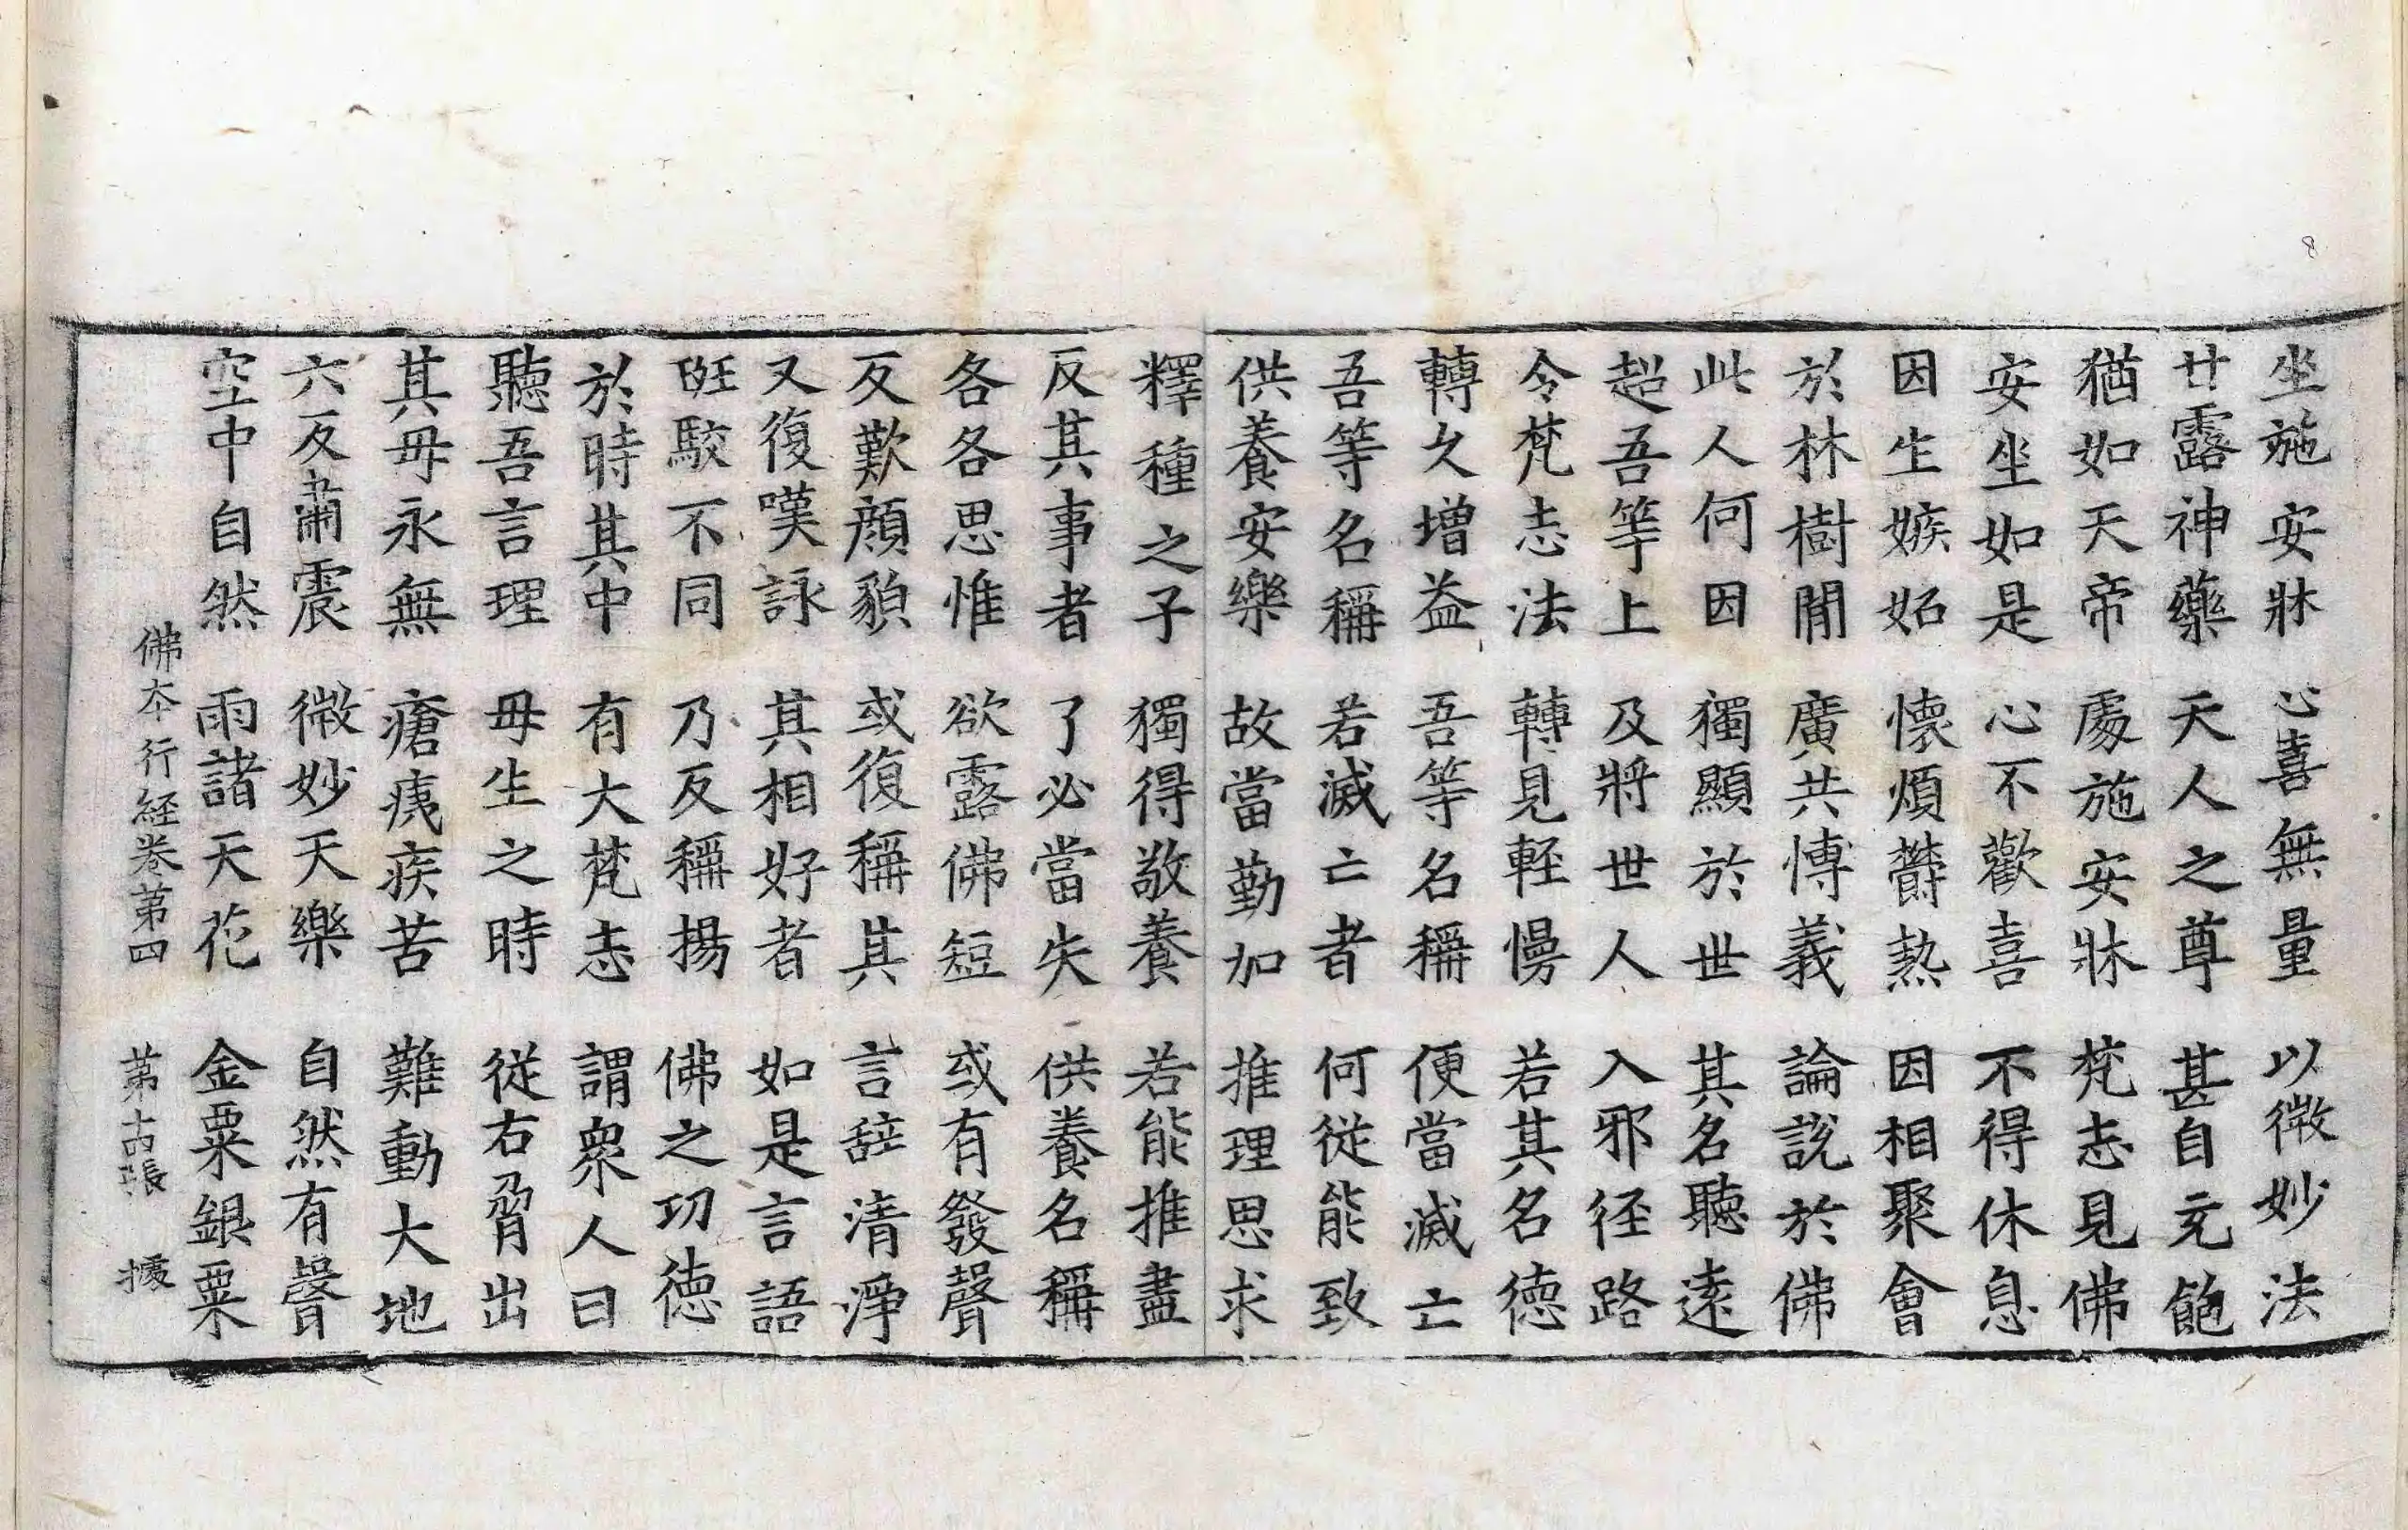 坐施安牀 心喜無量 以微妙法
甘露神藥 天人之尊 甚自充飽
猶如天帝 處施安牀 梵志見佛
安坐如是 心不歡喜 不得休息
因生嫉妬 懷煩欝熱 因相聚會
於林樹閒 廣共愽義 論說於佛
此人何因 獨顯於世 其名聽遠
超吾等上 及將世人 入邪徑路
令梵志法 轉見輕慢 若其名德
轉久增益 吾等名稱 便當滅亡
吾等名稱 若滅亡者 何從能致
供養安樂 故當勤加 推理思求
釋種之子 獨得敬養 若能推盡
反其事者 了必當失 供養名稱
各各思惟 欲露佛短 或有發聲
反歎顔貌 或復稱其 言辭清淨
又復嘆詠 其相好者 如是言語
斑駮不同 乃反稱揚 佛之功德
於時其中 有大梵志 謂衆人曰
聽吾言理 毋生之時 從右脅出
其毋永無 瘡痍疾苦 難動大地
六反肅震 微妙天樂 自然有聲
空中自然 雨諸天花 金粟銀粟
佛夲行經卷第四 第十四張 據
8